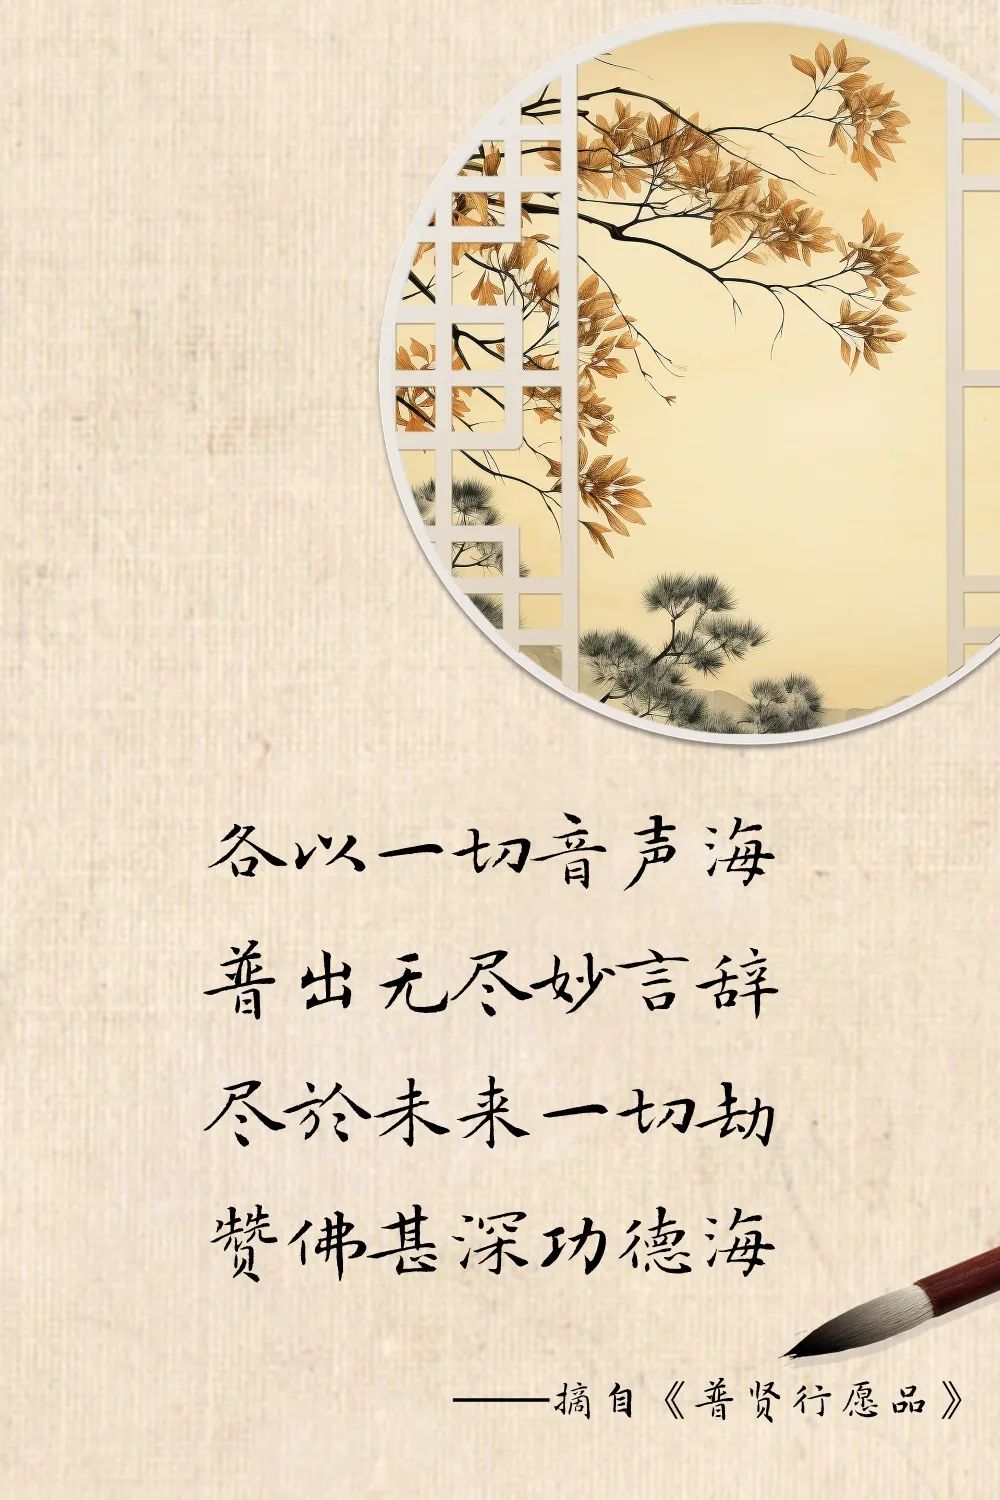 各以一切音声海
普出无尽妙言辞
尽於未来一切劫
赞佛甚深功德海
——摘自《普贤行愿品》